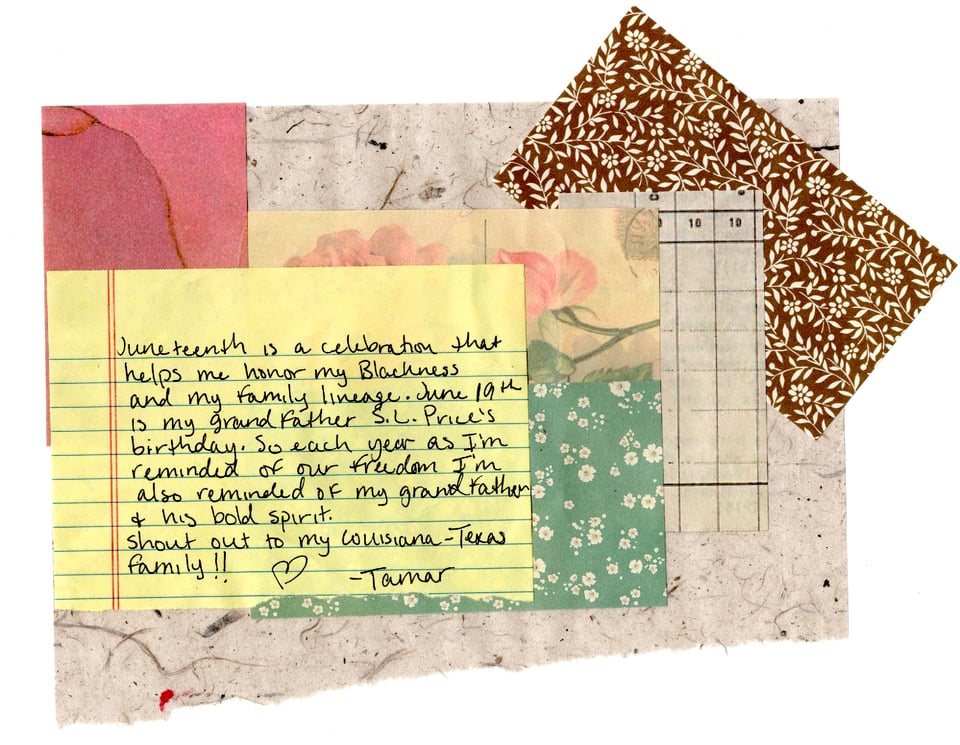 10 10
Juneteenth is a celebration that
helps me honor my Blackness
and my family lineage. June 19th
is my grandfather S.L. Price's
birthday. So each year as I'm
reminded of our freedom I'm
also reminded of my grandfather
& his bold spirit.
Shout out to my Louisiana-Texas
family!! ♡ -Tamar